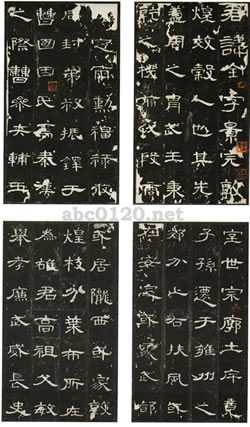 君諱全字景完敦
煌效穀人也其先
蓋周之胄武王秉
乾之機翦伐殷商
既定爾勳福祿攸
同封弟叔振鐸于
曹國因氏焉秦漢
之際曹參夾輔王
室世宗廓土斥竟
子孫遷于雍州之
郊分止右扶風或
在安定或處武都
或居隴西或家敦
煌枝分葉布所在
為雄君高祖父敏
舉孝廉武威長史
abc0120.net